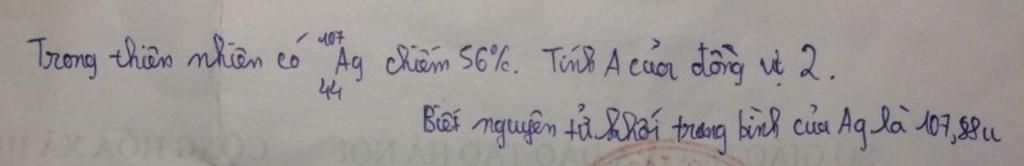 Trong thiên nhiên có ¹⁰⁷₄₄Ag chiếm 56%. Tính A của đồng vị 2.
Biết nguyên tử khối trung bình của Ag là 107,88u